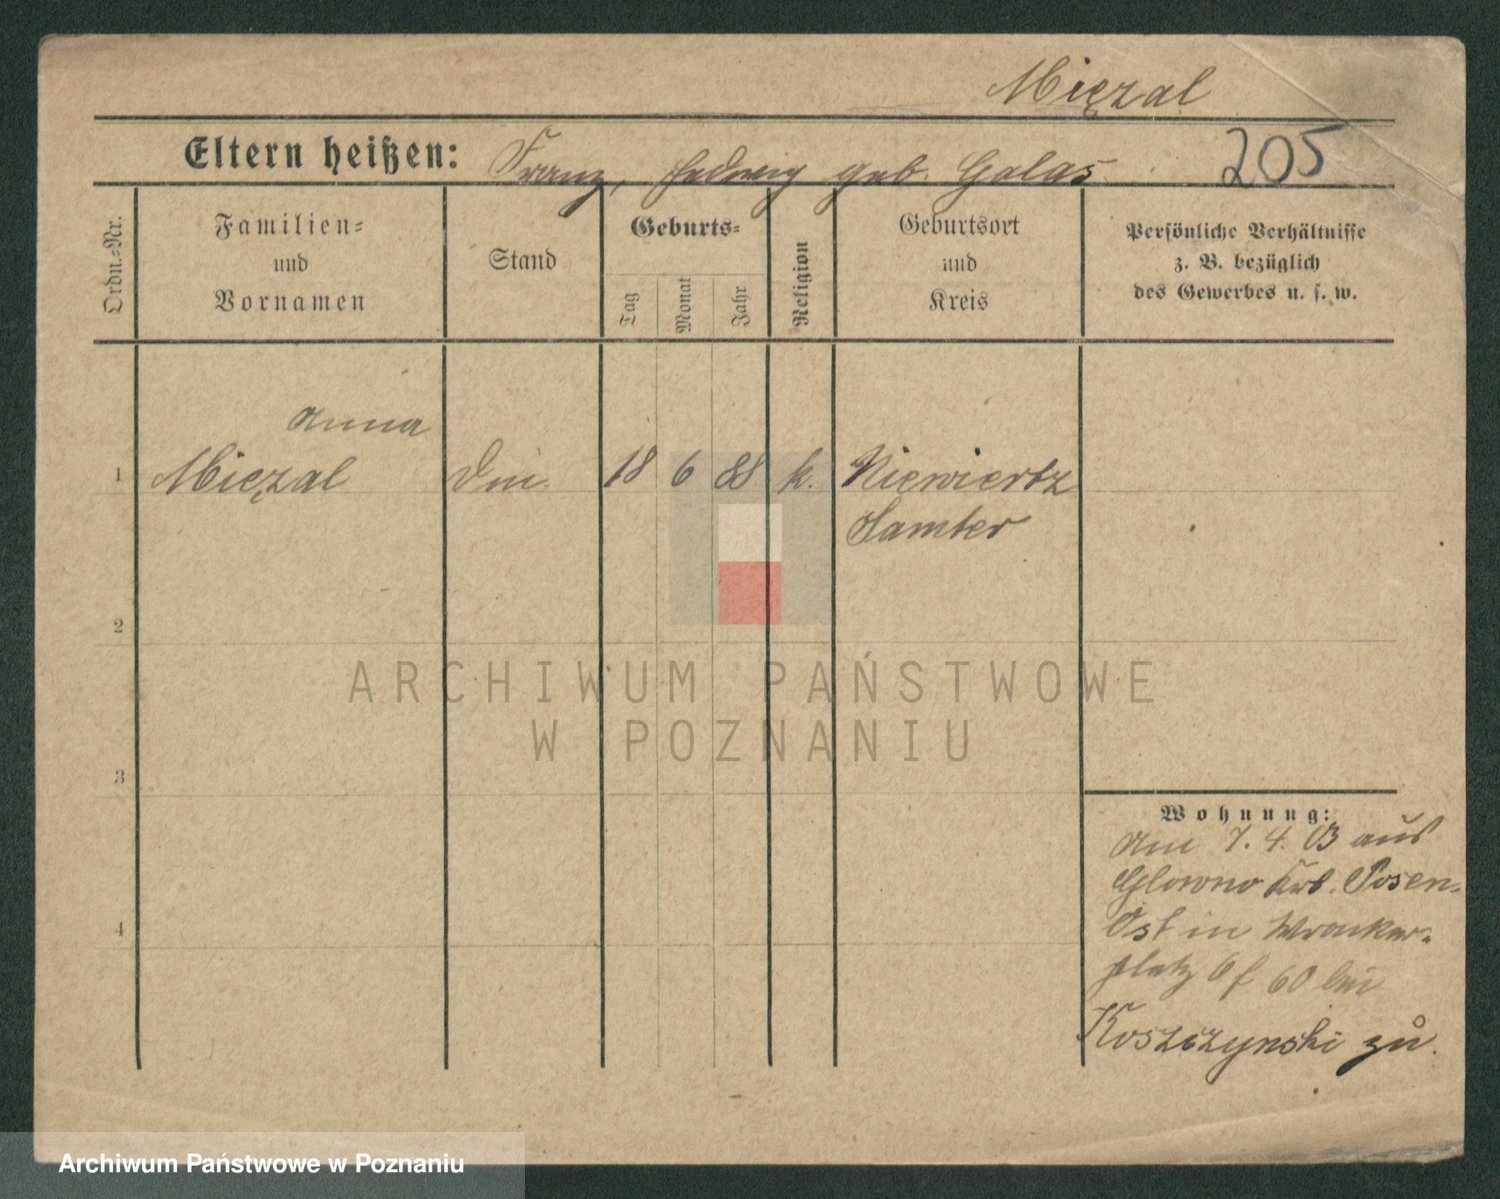 Mięzal
Eltern heißen: Franz, Hedwig geb. Galas
205
Ordn.-Nr.
Familien- und Vornamen
Stand
Geburts-
Tag
Monat
Jahr
Religion
Geburtsort und Kreis
Persönliche Verhältnisse
z. B. bezüglich
des Gewerbes u. s. w.
Anna
1 Mięzal 18 6 88 k. Niewiertz
Samter
2
3
4
Wohnung:
Am 7. 4. 03 aus
Glowno Krs. Posen-
Ost in Wronker-
platz 6 f 60 bei
Koszczynski zu.
ARCHIWUM PAŃSTWOWE
W POZNANIU
Archiwum Państwowe w Poznaniu